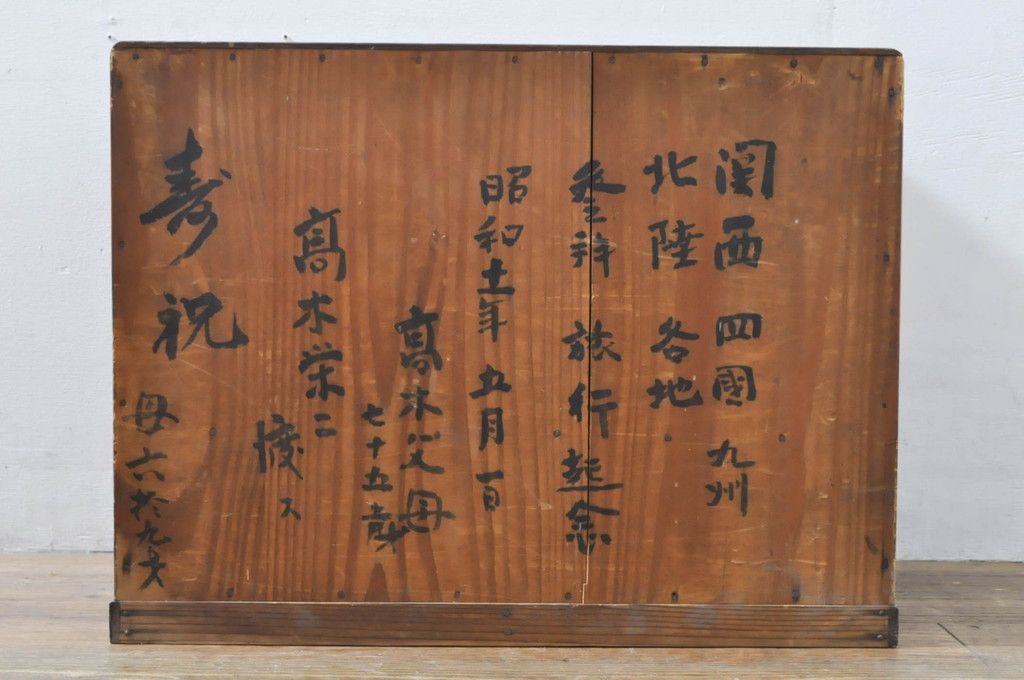 関西 四國 九州
北陸 各地
参拜 旅行 起念
昭和十一年 五月 一日
高木父母
七十五歳
高木栄二
渡ス
寿祝
母 六拾九才